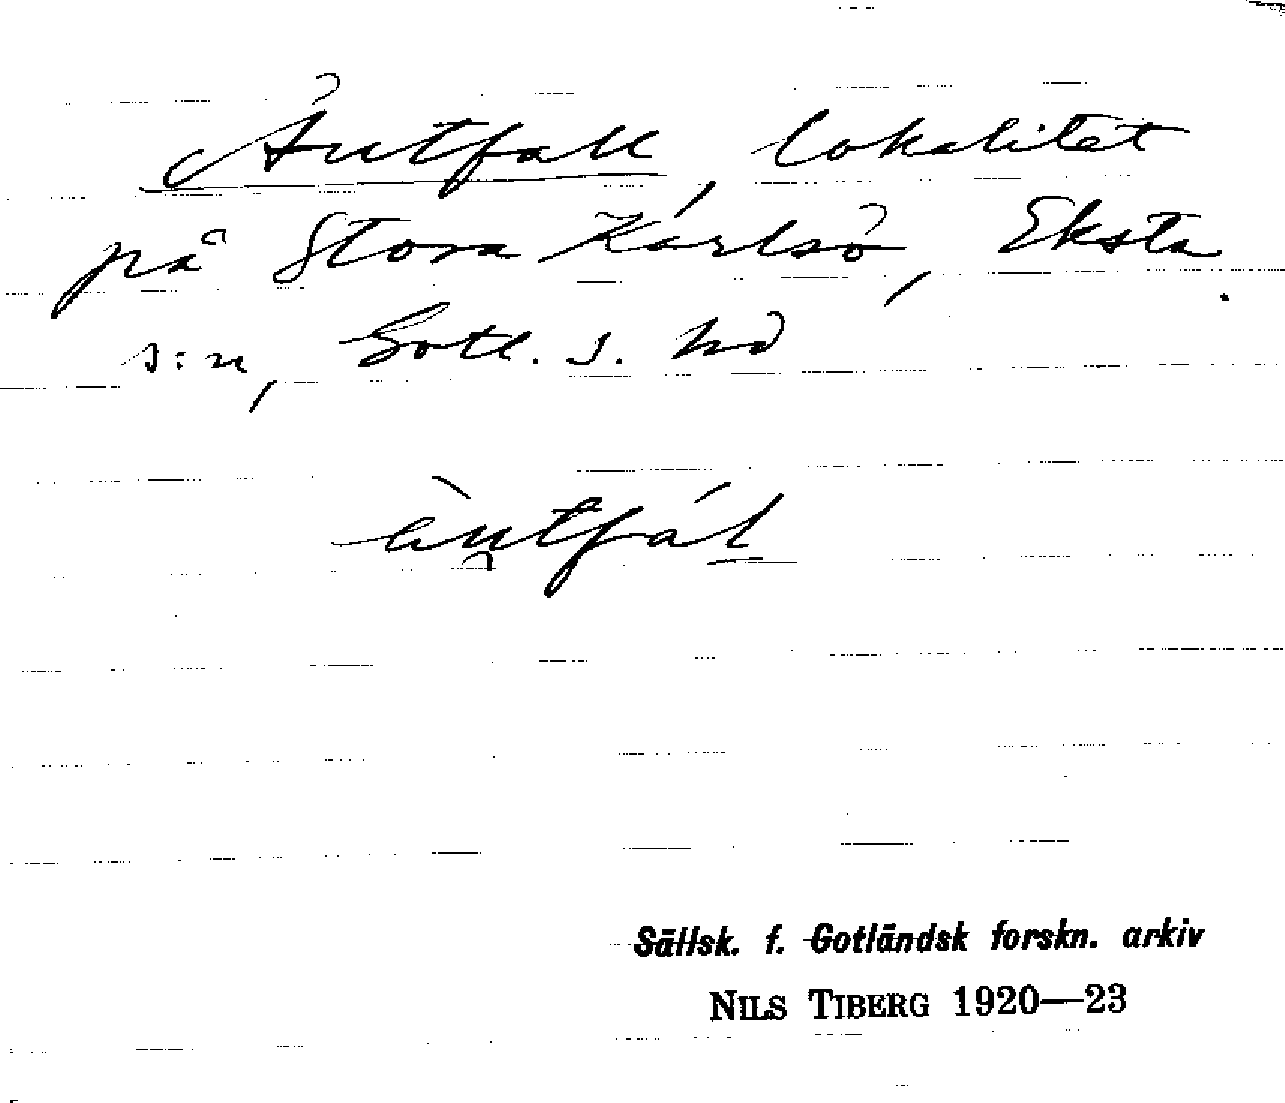 Åutfall, lokalitet
på Stora Karlsö, Eksta
s:n, Gotl. s. hd
Sällsk. f. Gotländsk forskn. arkiv
NILS TIBERG 1920—23